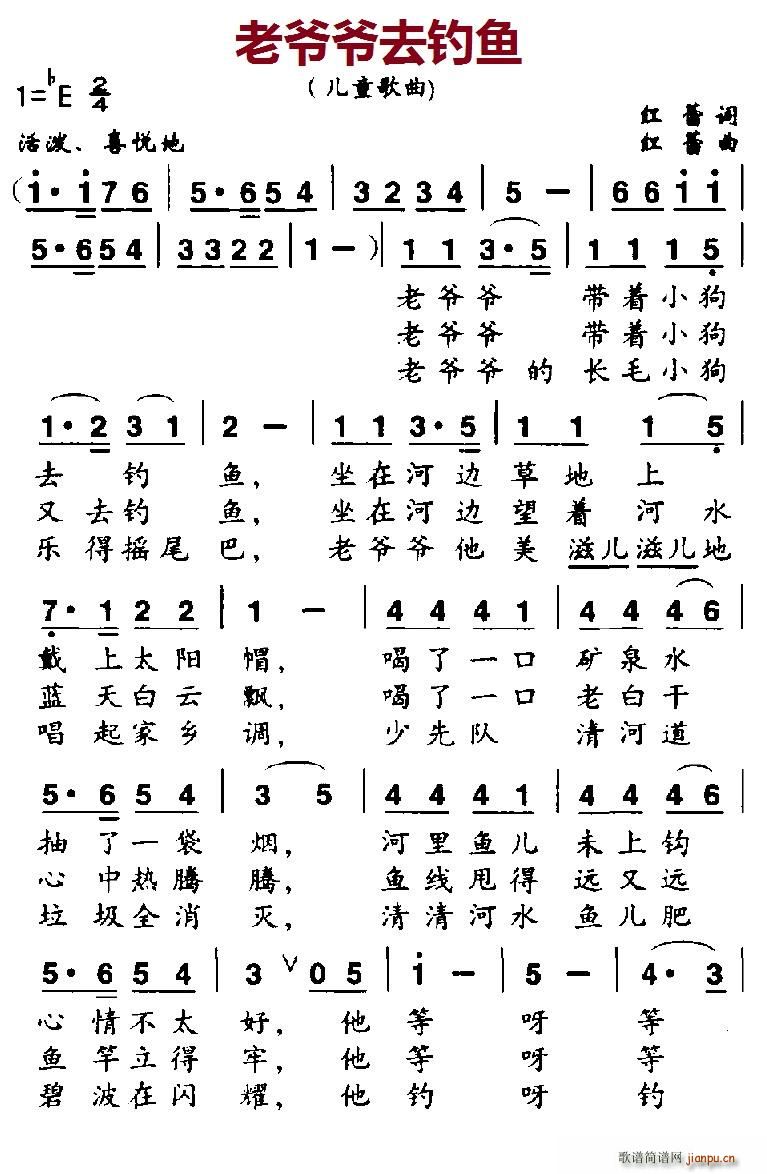 老爷爷去钓鱼
(儿童歌曲)
1=♭E 2/4
红蕾 词
活泼、喜悦地
红蕾 曲
(i·i 7 6 | 5·6 5 4 | 3 2 3 4 | 5 — | 6 6 i i |
5·6 5 4 | 3 3 2 2 | 1 — ) | 1 1 3·5 | 1 1 1 5 |
老爷爷 带着小狗
老爷爷 带着小狗
老爷爷的 长毛小狗
1·2 3 1 | 2 — | 1 1 3·5 | 1 1 1 5 |
去钓鱼, 坐在河边草地上
又去钓鱼, 坐在河边望着河水
乐得摇尾巴, 老爷爷他美滋儿滋儿地
7·1 2 2 | 1 — | 4 4 4 1 | 4 4 4 6 |
戴上太阳帽, 喝了一口矿泉水
蓝天白云飘, 喝了一口老白干
唱起家乡调, 少先队 清河道
5·6 5 4 | 3 5 | 4 4 4 1 | 4 4 4 6 |
抽了一袋烟, 河里鱼儿未上钩
心中热腾腾, 鱼线甩得远又远
垃圾全消灭, 清清河水鱼儿肥
5·6 5 4 | 3 ∨ 0 5 | i — | 5 — | 4·3 |
心情不太好, 他等呀等
鱼竿立得牢, 他等呀等
碧波在闪耀, 他钓呀钓
歌谱简谱网
jianpu.cn